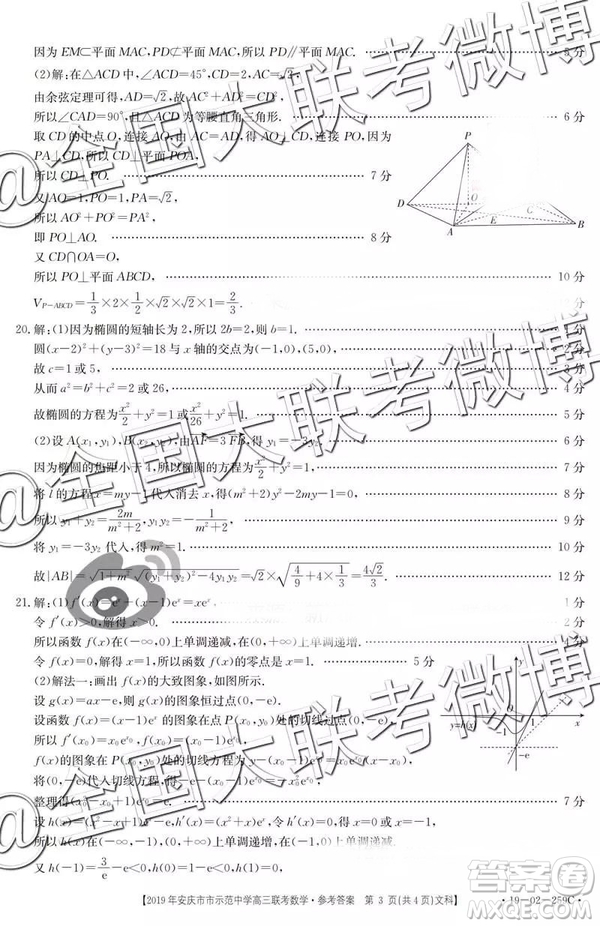 因为EM⊂平面MAC,PD⊄平面MAC,所以PD∥平面MAC. 5分
(2)解:在△ACD中,∠ACD=45°,CD=2,AC=√2,
由余弦定理可得,AD=√2,故AC²+AD²=CD²,
所以∠CAD=90°,且△ACD为等腰直角三角形. 6分
取CD的中点O,连接AO,PO,因为
PA⊥CD,所以CD⊥平面POA,
所以CD⊥PO. 7分
又AO=1,PO=1,PA=√2,
所以AO²+PO²=PA²,
即PO⊥AO. 8分
又CD∩OA=O,
所以PO⊥平面ABCD, 10分
V_{P-ABCD}=1/3×2×1/2×√2×√2×1=2/3.
P
D
O
C
A
E
B
20.解:(1)因为椭圆的短轴长为2,所以2b=2,则b=1. 1分
圆(x-2)²+(y-3)²=18与x轴的交点为(-1,0),(5,0),
故c=1或5,
从而a²=b²+c²=2或26,
故椭圆的方程为x²/2+y²=1或x²/26+y²=1. 5分
(2)设A(x₁,y₁),B(x₂,y₂),由AF=3FB,得y₁=-3y₂.
因为椭圆的焦距小于4,所以椭圆的方程为x²/2+y²=1,
将l的方程x=my-1代入消去x,得(m²+2)y²-2my-1=0,
所以y₁+y₂=2m/(m²+2),y₁y₂=-1/(m²+2). 9分
将y₁=-3y₂代入,得m²=1.
故|AB|=√(1+m²)√((y₁+y₂)²-4y₁y₂)=√2×√(4/9+4×1/3)=4√2/3. 12分
21.解:(1)f′(x)=eˣ+(x-1)eˣ=xeˣ. 1分
令f′(x)>0,解得x>0,
所以函数f(x)在(-∞,0)上单调递减,在(0,+∞)上单调递增.
令f(x)=0,解得x=1,所以函数f(x)的零点是x=1. 5分
(2)解法一:画出f(x)的大致图象,如图所示.
设g(x)=ax-e,则g(x)的图象恒过点(0,-e).
设函数f(x)=(x-1)eˣ的图象在点P(x₀,y₀)处的切线过点(0,-e),
所以f′(x₀)=x₀e^{x₀},f(x₀)=(x₀-1)e^{x₀},
f(x)的图象在P(x₀,y₀)处的切线方程为y-(x₀-1)e^{x₀}=x₀e^{x₀}(x-x₀),
将(0,-e)代入切线方程,得-e-(x₀-1)e^{x₀}=-x₀²e^{x₀},
整理得(x₀²-x₀+1)e^{x₀}=e. 7分
设h(x)=(x²-x+1)eˣ-e,所以h′(x)=(x²+x)eˣ,
所以h(x)在(-∞,-1),(0,+∞)上单调递增,在(-1,0)上单调递减,
又h(-1)=3/e-e<0,h(0)=1-e<0,h(1)=0,
【2019年安庆市市示范中学高三联考数学·参考答案 第3页(共4页)文科】 ·19-02-259C·
@全国大联考微博
@全国大联考微博
答案圈
MXQE.COM